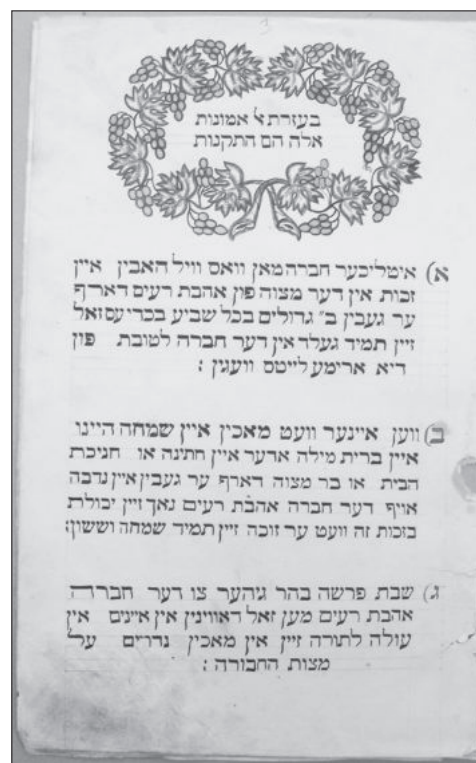 בעזרת ל אמונות
אלה הם התקנות
א) איטליכער חברה מאן וואס וויל האבין איין
זכות אין דער מצוה פון אהבת רעים דארף
ער געבין ב״ גדולים בכל שביע בכדי עס זאל
זיין תמיד געלד אין דער חברה לטובת פון
דיא ארימע לייטס וועגין :
ב) ווען איינער וועט מאכין איין שמחה היינו
איין ברית מילה אדער איין חתינה או חניכת
הבית או בר מצוה דארף ער געבין איין נדבה
אויף דער חברה אהבת רעים נאך זיין יכולת
בזכות זה וועט ער זוכה זיין תמיד שמחה וששון:
ג) שבת פרשה בהר גיהער צו דער חברה
אהבת רעים מען זאל דאווינין אין איינים אין
עולה לתורה זיין אין מאכין נדרים על
מצות החבורה :